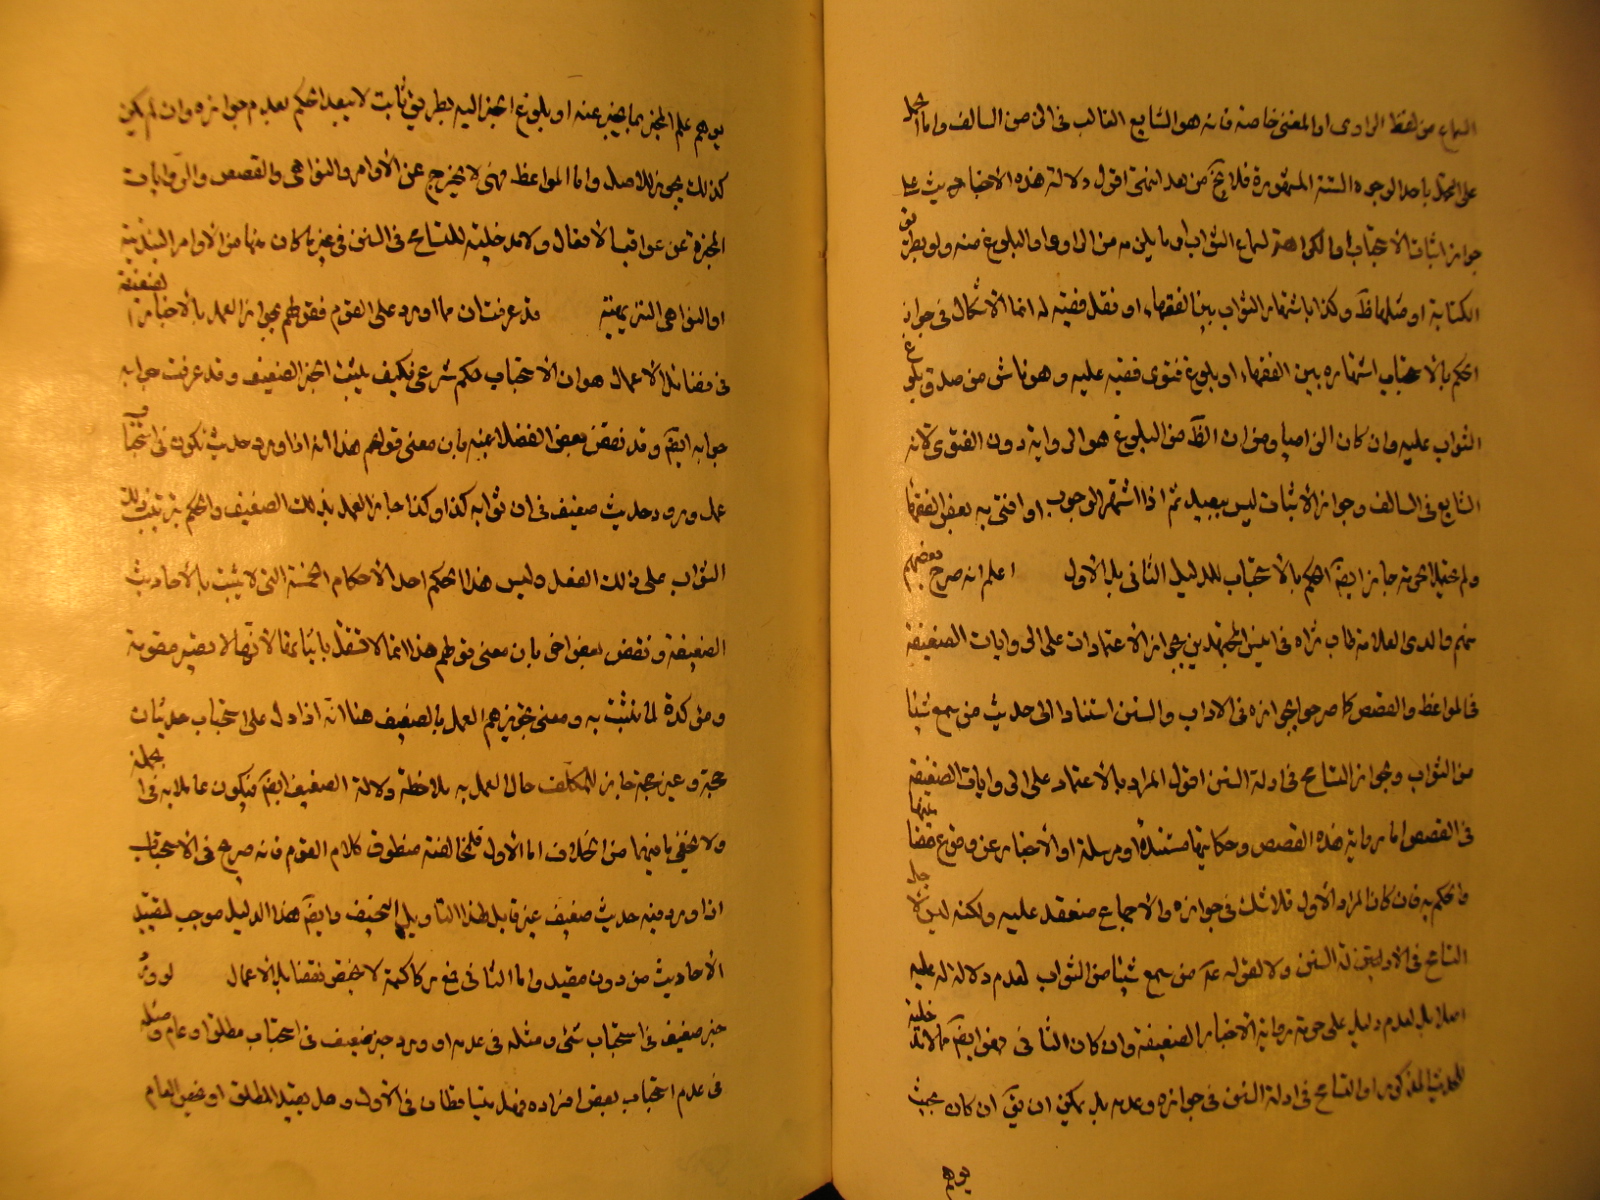 السماع من لفظ الراوى او المعنى خاصة فانه هو الشايع الغالب فى الزمن السالف واما الحمل
على التحمل باحد الوجوه الستة المشهورة فلا يخ من بعد انتهى اقول دلالة هذه الاخبار حديث على
جواز اثبات الاستحباب او الكراهة لسماع الثواب او ما يلزمه من الراوى او البلوغ منه ولو بطريق
الكتابة او مثلها ظ وكذا باشتهار الثواب بين الفقهاء او فقل فقيه له انما الاشكال فى جواز
الحكم بالاستحباب اشتهاره بين الفقهاء او بلوغ فتوى فقيه عليه وهو ناش من صدق بلوغ
الثواب عليه وان كان التزاميا ومن ان الظ من البلوغ هو الرواية دون الفتوى كانه
الشايع فى السالف وجواز الاثبات ليس ببعيد ثم اذا اشتهر الوجوب او افتى به بعض الفقهاء
ولم يحتمل الحرمة جاز ايضا الحكم بالاستحباب للدليل الثانى بل الاول اعلم انه صرح بعضهم
منهم والدى العلامة طاب ثراه فى انيس المجتهدين بجواز الاعتماد على الروايات الضعيفة
فى المواعظ والقصص كما صرحوا بجوازه فى الاداب والسنن استنادا الى حديث من سمع شيئا
من الثواب وبجواز التسامح فى ادلة السنن اقول المراد بالاعتماد على الروايات الضعيفة
فى القصص اما رواية هذه القصص وحكايتها مستندة او مرسلة او الاخبار عن وقوع مقتضاها
والحكم به فان كان المراد الاول فلا شك فى جوازه والاجماع منعقد عليه ولكنه ليس لاجل
التسامح فى ادلة السنن ولا لقوله عم من سمع شيئا من الثواب لعدم دلالة له عليه
اصلا بل لعدم دليل على حرمة رواية الاخبار الضعيفة وان كان الثانى فهو ايضا مما لا مدخلية
للحديث المذكور او التسامح فى ادلة السنن فى جوازه وعدمه بل يمكن ان يق ان كان بحيث
يوهم
يوهم علم المخبر بما يخبر عنه او بلوغ الخبر اليه بطريق ثابت لا يبعد الحكم بعدم جوازه وان لم يكن
كذلك يجوز للاصل واما المواعظ فهى لا يخرج عن الاوامر والنواهى والقصص والروايات
المخبرة عن عواقب الافعال ولا مدخلية للتسامح فى السنن فى غير ما كان منها من الاوامر الندبية
او النواهى التنزيهية قد عرفت ان مما اورد على القوم فقولهم بجواز العمل بالاخبار الضعيفة
فى فضائل الاعمال هو ان الاستحباب حكم شرعى فكيف يثبت الخبر الضعيف وقد عرفت جوابه
جوابه ايضا وقد نقض بعض الفضلاء عنه بان معنى قولهم هذا انه اذا ورد حديث يكون فى استحباب
عمل وورد حديث ضعيف فى ان ثوابه كذا وكذا جاز العمل بذلك الضعيف والحكم بترتب ذلك
الثواب على ذلك الفعل وليس هذا الحكم احد الاحكام الخمسة التى لا يثبت بالاحاديث
الضعيفة ونقض بعض اخر بان معنى قولهم هذا انما لا نقول باثباتها الا انها لا تصير مقوية
ومؤكدة لما يثبت به ومعنى تجويزهم العمل بالضعيف هنا انه اذا دل على استحباب حديثان
حجة وغير حجة جاز للمكلف حال العمل به ملاحظة دلالة الضعيف ايضا فيكون عاملا به فى الجملة
ولا يخفى ما فيهما من الخلاف اما الاول فلمخالفته منطوق كلام القوم فانه صرح فى الاستحباب
اذا ورد فيه حديث ضعيف غير قابل لهذا التاويل السخيف وايضا هذا الدليل موجب لتقييد
الاحاديث من دون مقيد واما الثانى فمع ركاكته لا يختص بفضايل الاعمال لو ورد
خبر ضعيف فى استحباب شئ ومثله فى عدمه او ورد خبر ضعيف فى استحباب مطلق او عام ومثله
فى عدم استحباب بعض افراده فهل يتساقطان فى الاول وهل يقيد المطلق او يخص العام